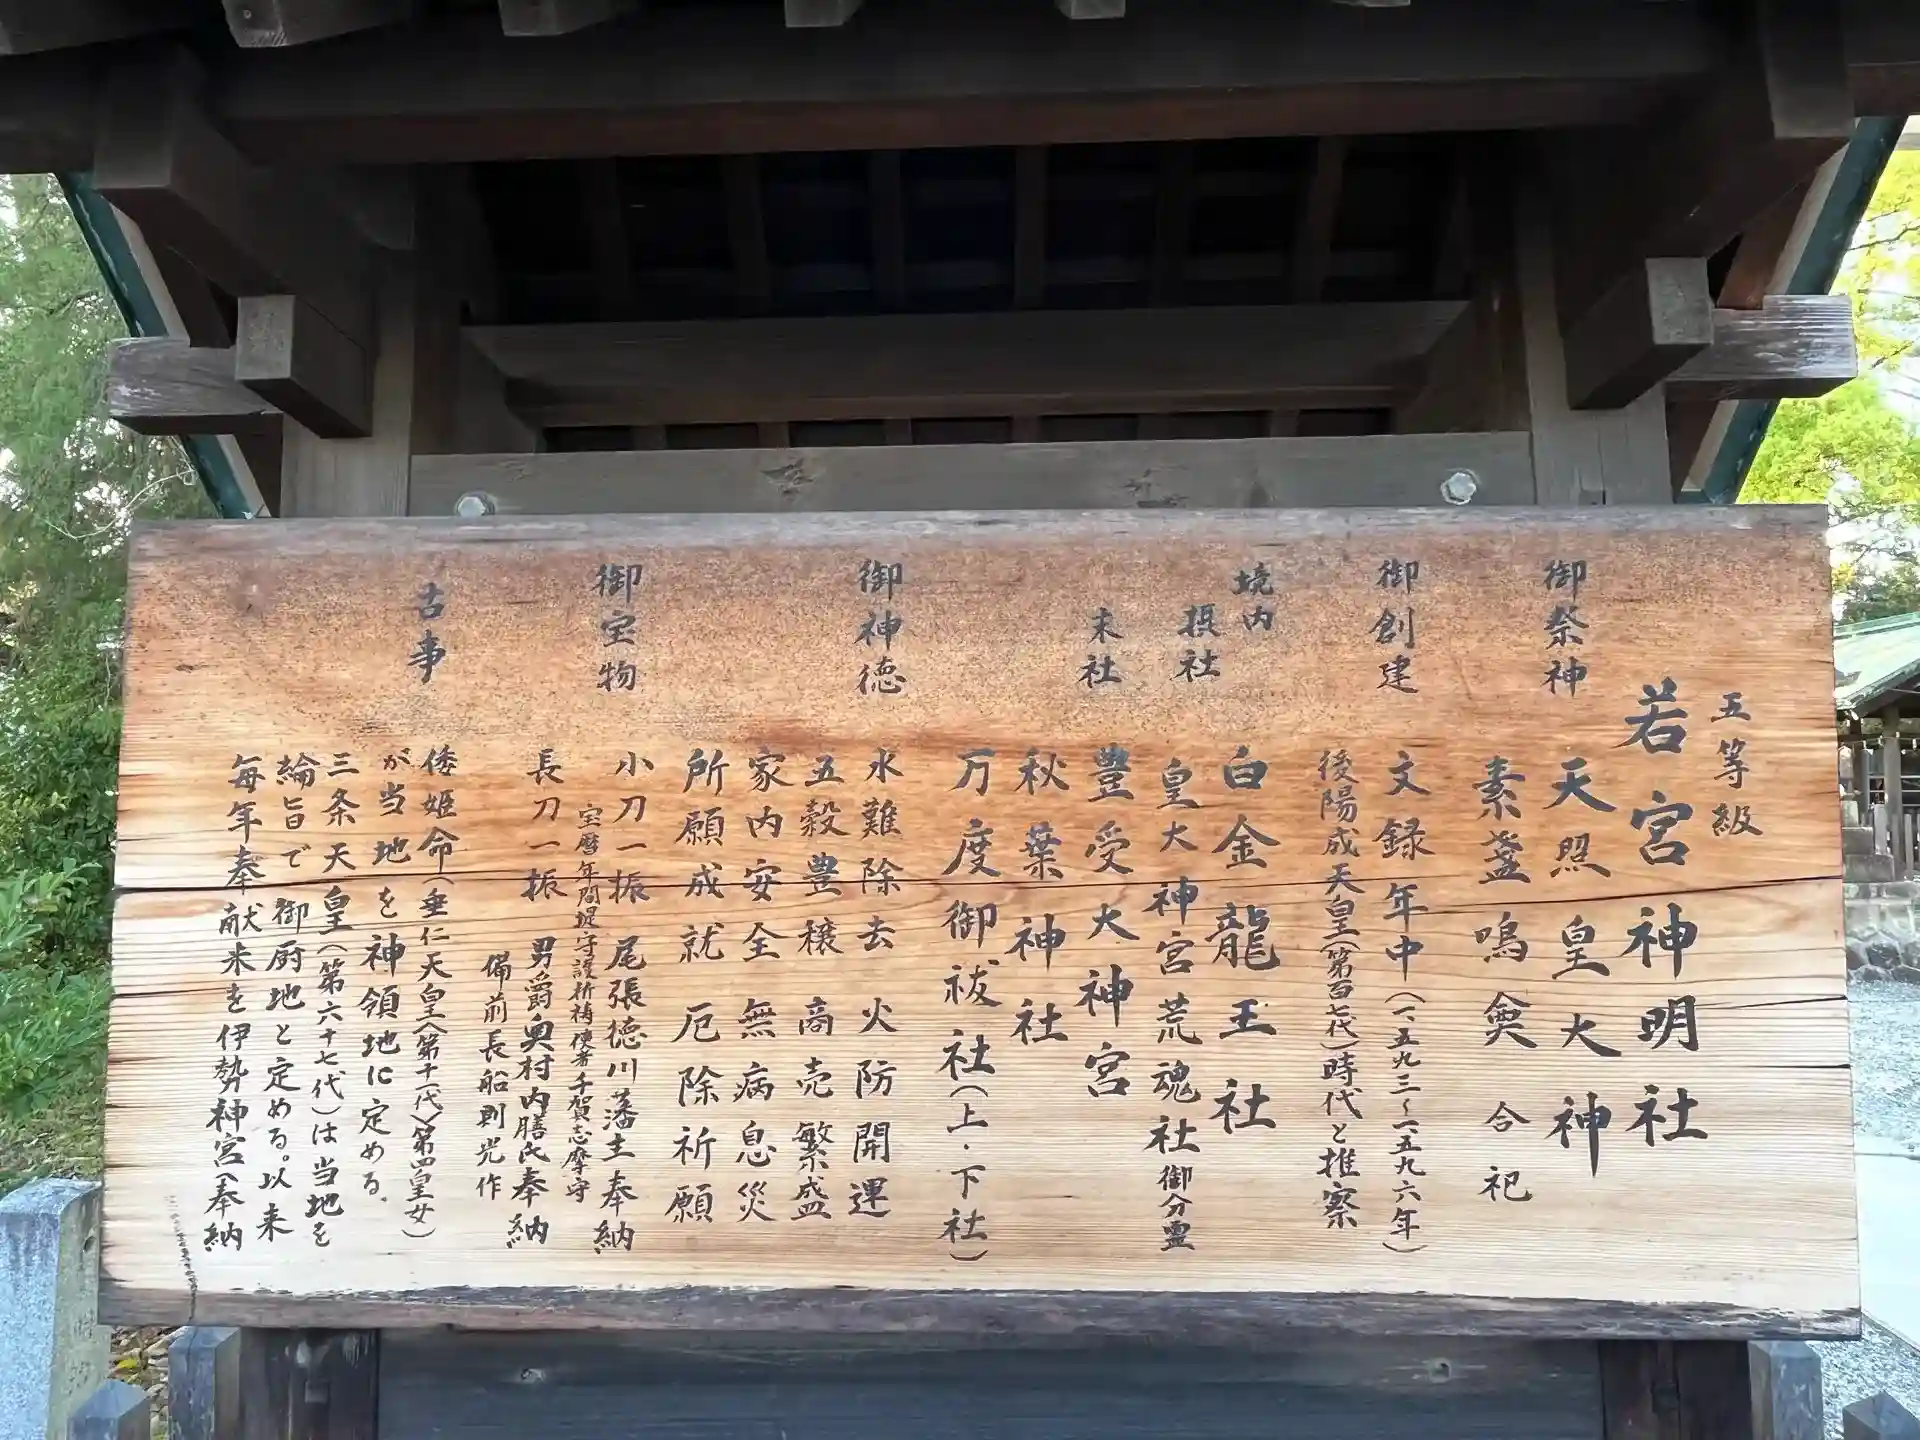 五等級
若宮神明社
御祭神
天照皇大神
素盞嗚尊合祀
御創建
文録年中(一、五九三~一五九六年)
後陽成天皇(第百七代)時代と推察
境内
摂社
白金龍王社
皇大神宮荒魂社御分霊
末社
豊受大神宮
秋葉神社
万度御祓社(上・下社)
御神徳
水難除去 火防開運
五穀豊穣 商売繁盛
家内安全 無病息災
所願成就 厄除祈願
御宝物
小刀一振 尾張徳川藩主奉納
宝暦年間堤守護祈祷使者千賀志摩守
長刀一振 男爵奥村内膳氏奉納
備前長船則光作
古事
倭姫命(垂仁天皇(第十一代)第四皇女)
が当地を神領地に定める。
三条天皇(第六十七代)は当地を
綸旨で御厨地と定める。以来
毎年奉献米を伊勢神宮へ奉納